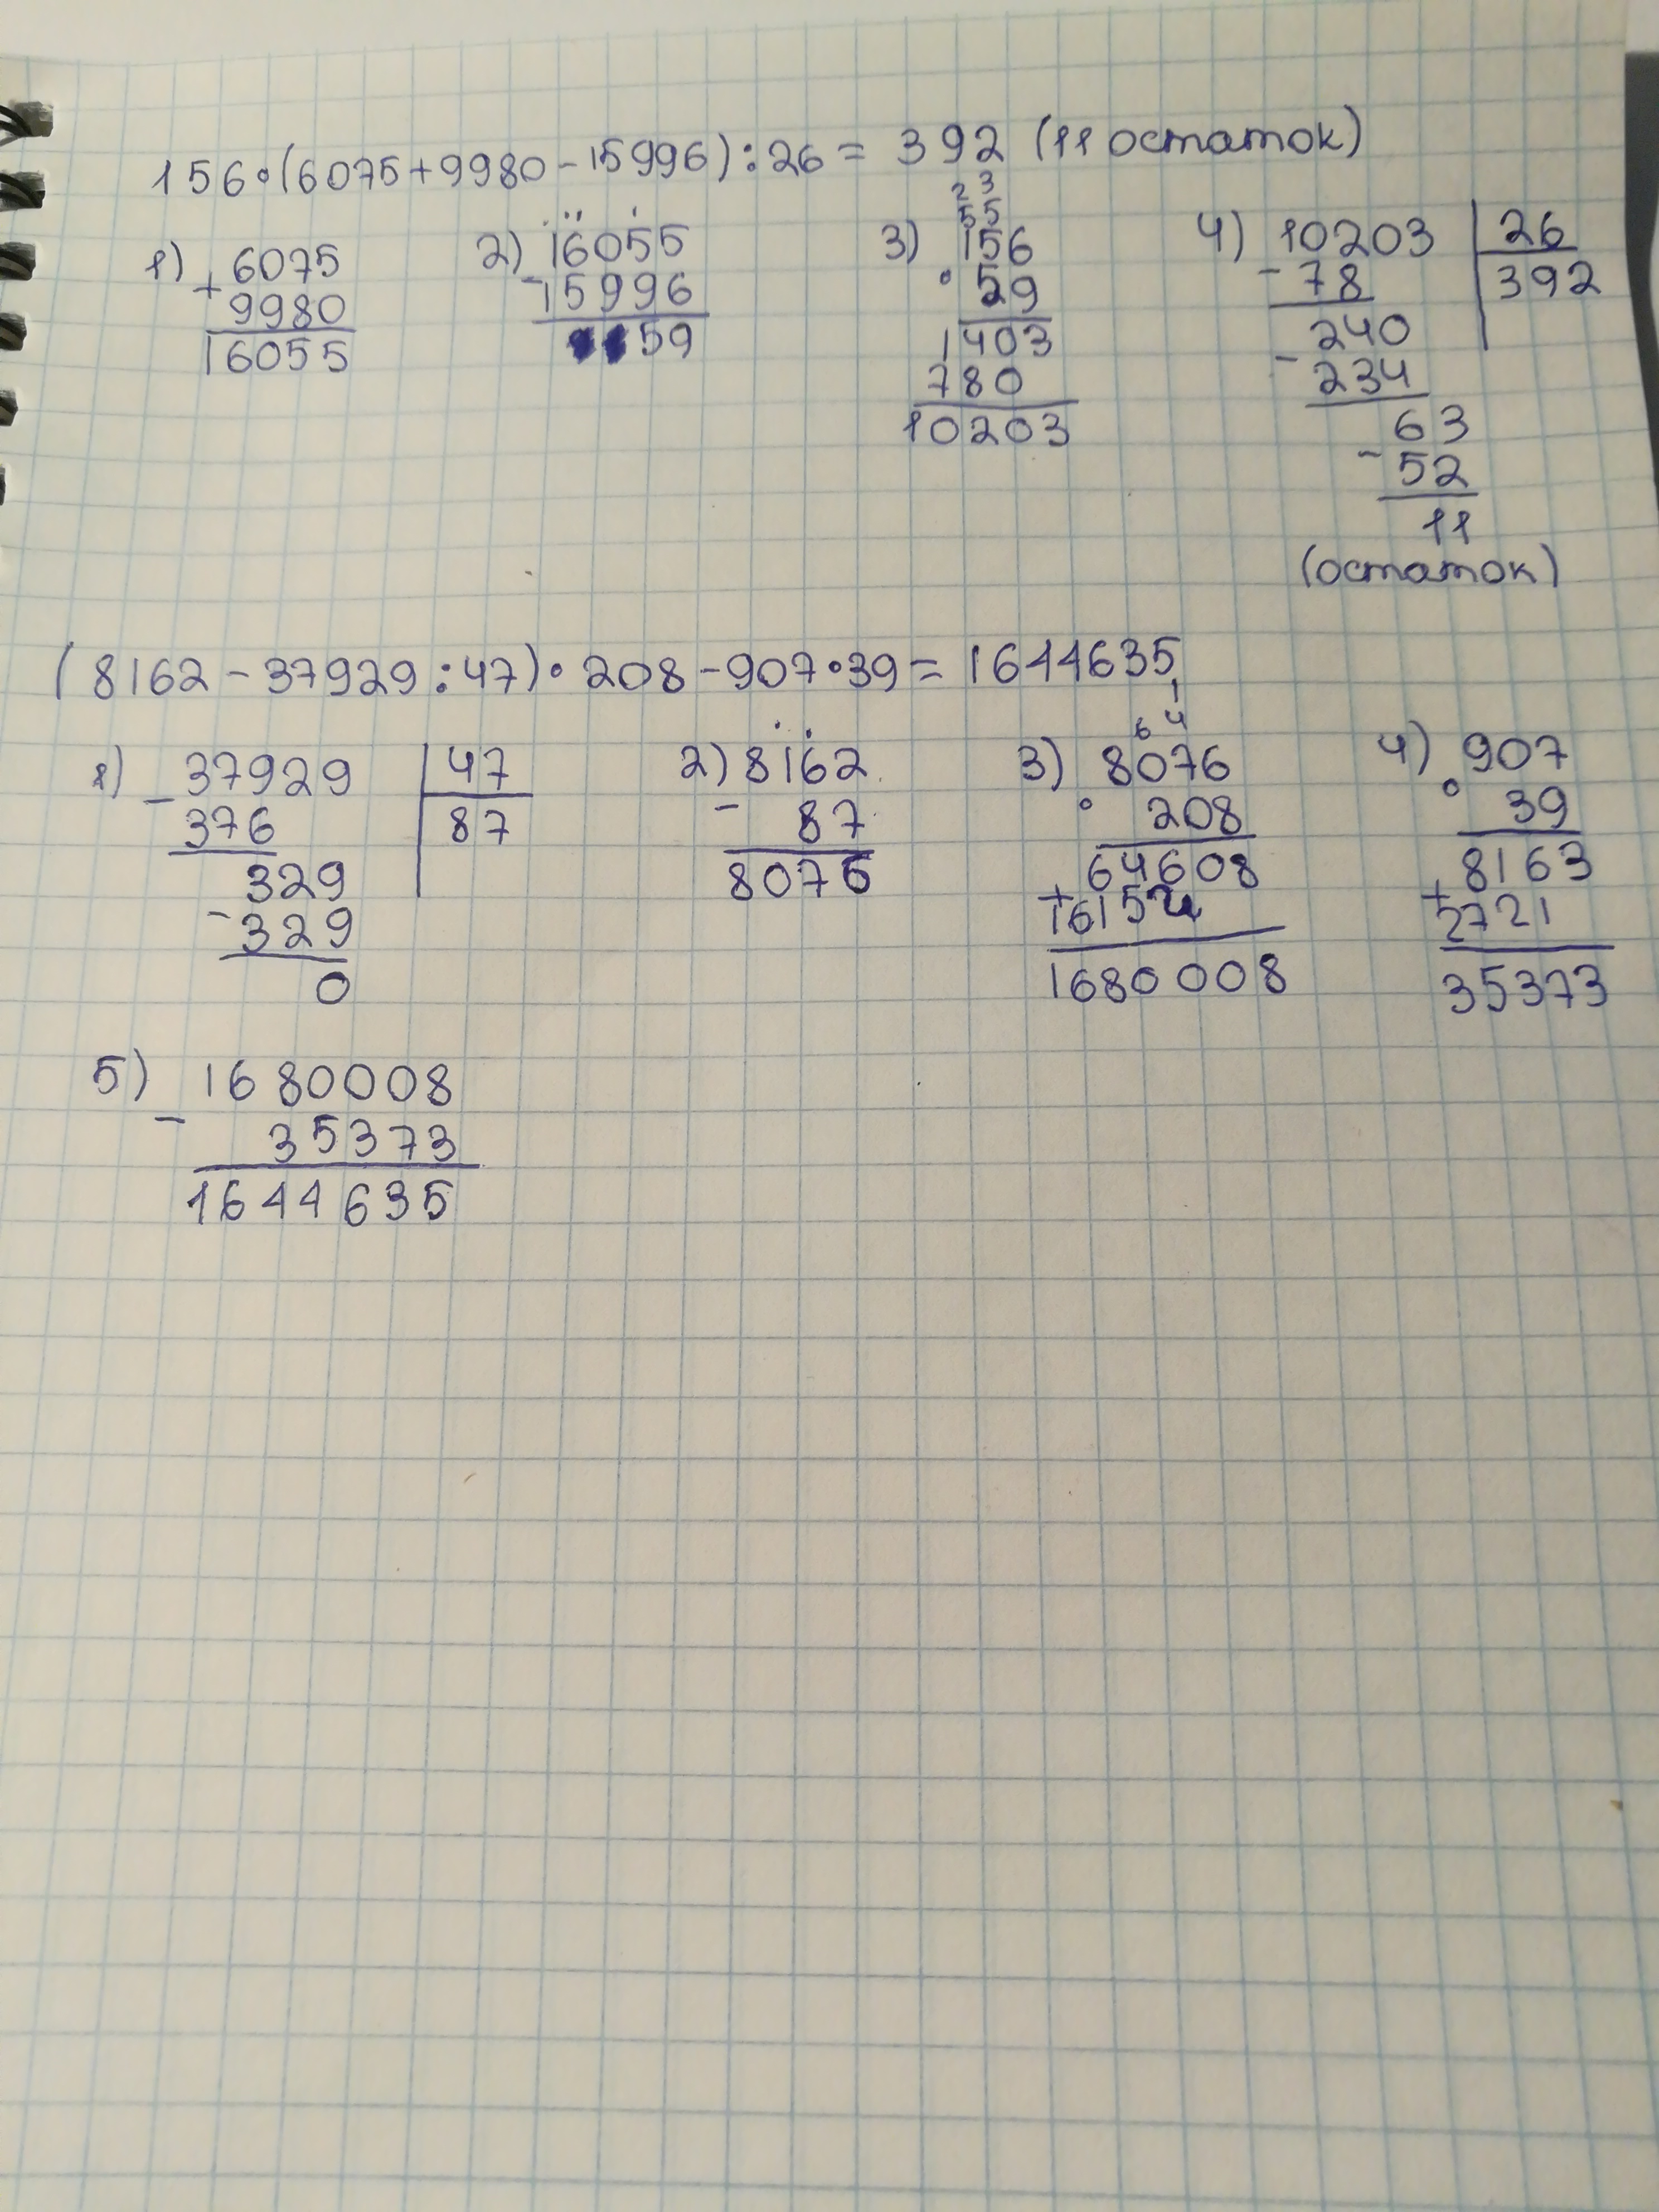 156·(6075+9980-15996):26= 392 (11 остаток)
1) 6075
+
9980
16055
2) 16055
-
15996
59
2 3
5 5
3) 156
· 59
1403
780
10203
4) 10203 26
- 78 392
240
- 234
63
- 52
11
(остаток)
(8162-37929:47)·208-907·39=1644635
1) 37929 47
- 376 87
329
- 329
0
2) 8162
- 87
8076
1
6 4
3) 8076
· 208
64608
+ 16152
1680008
4) 907
· 39
8163
+ 2721
35373
5) 1680008
- 35373
1644635